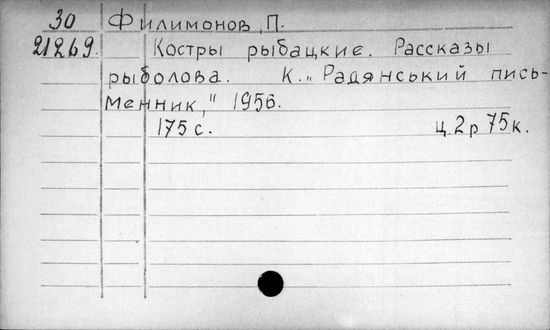 30 Филимонов, П.
21269 Костры рыбацкие. Рассказы
рыболова. К. „Радянський пись-
менник," 1956.
175 с. ц. 2 р 75 к.